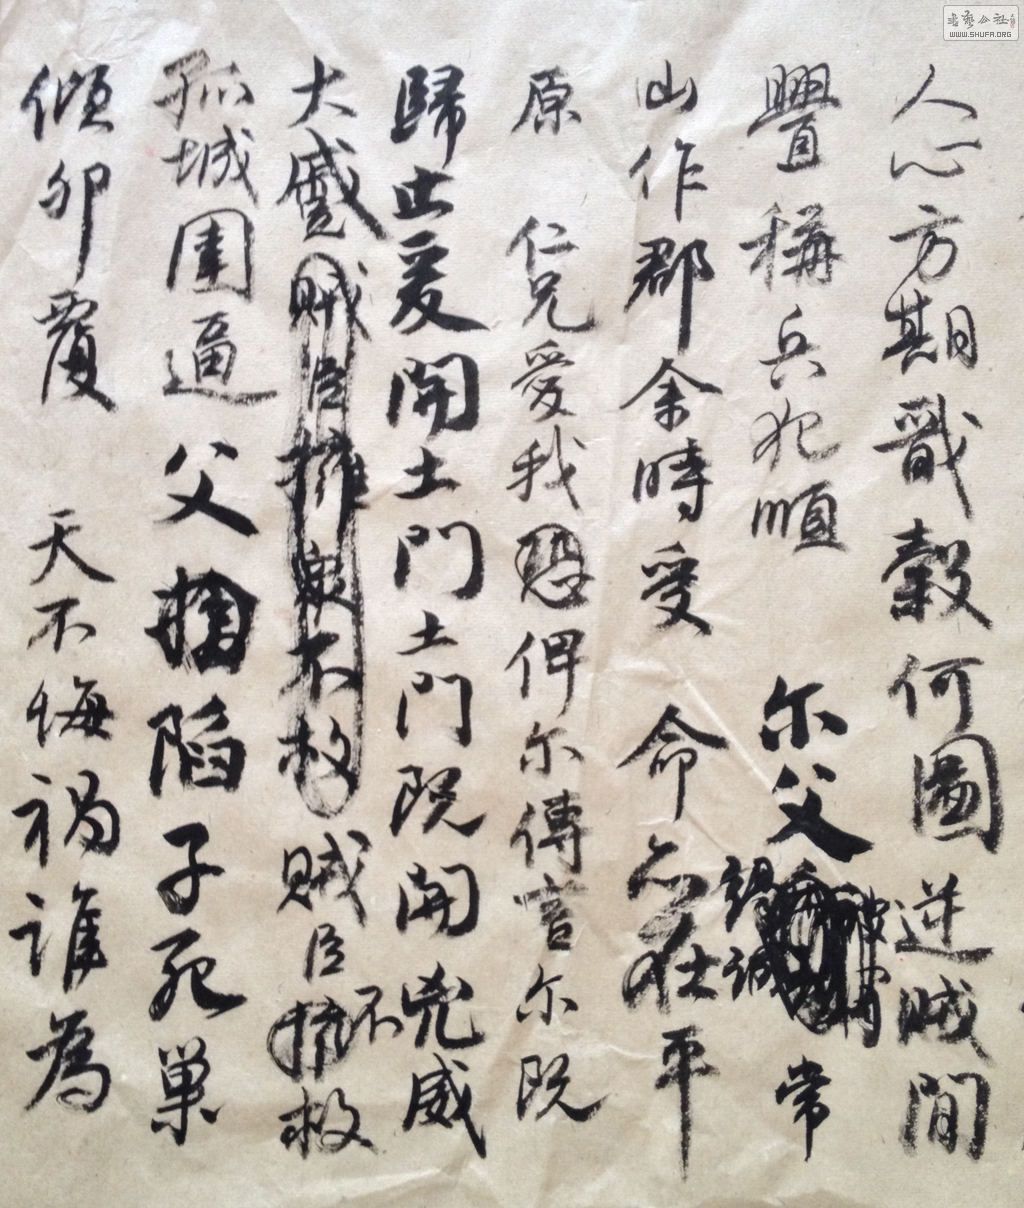 人心方期戬穀何圖逆賊閒
釁稱兵犯順　尔父竭誠常
山作郡余時受　命亦在平
原　仁兄愛我恐俾尔傳言尔既
歸止爰開土門土門既開兇威
大蹙賊臣擁衆不救賊臣不救
孤城圍逼父擒陷子死巢
傾卵覆　天不悔禍誰為
書藝公社
WWW.SHUFA.ORG